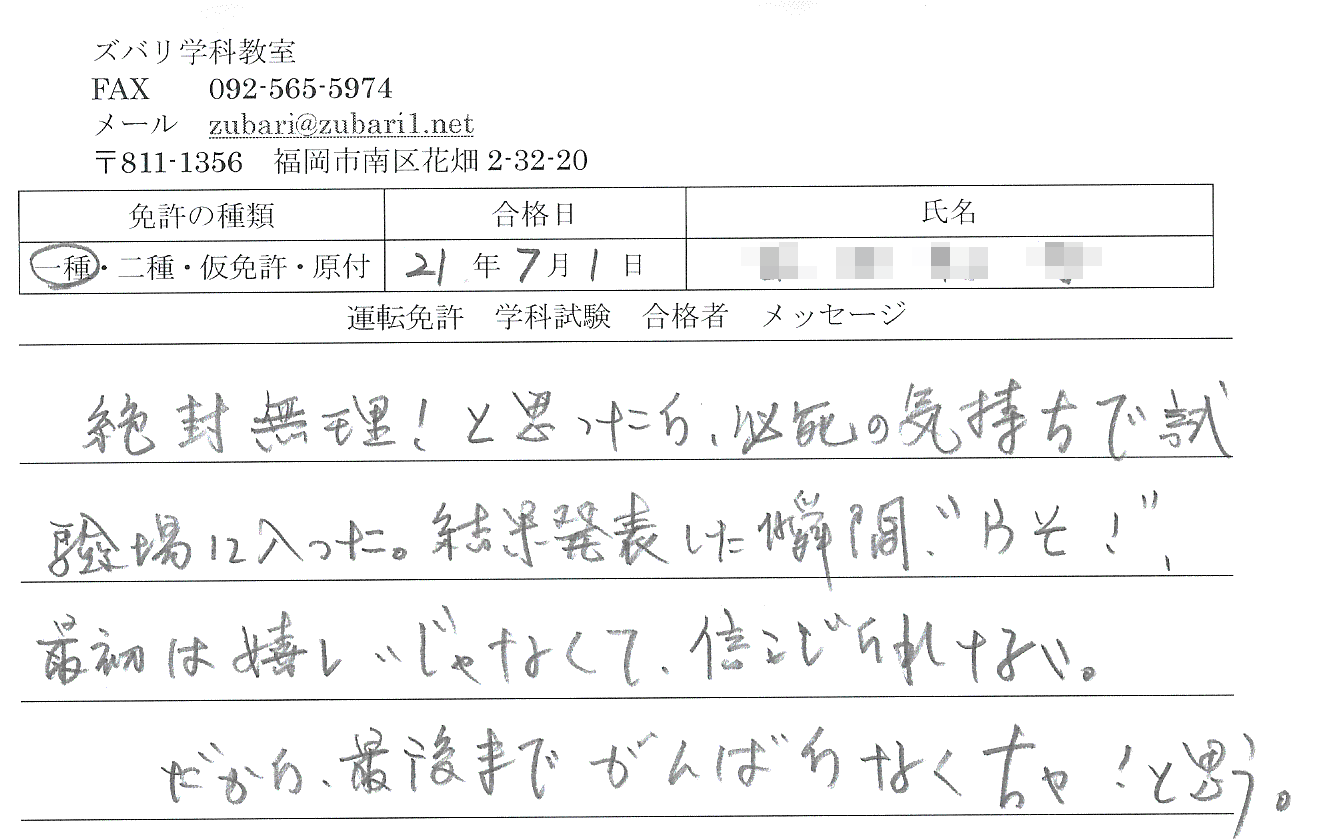 ズバリ学科教室
FAX 092-565-5974
メール zubari@zubari1.net
〒811-1356 福岡市南区花畑 2-32-20
免許の種類 合格日 氏名
一種・二種・仮免許・原付 21 年 7 月 1 日
運転免許 学科試験 合格者 メッセージ
絶対無理！と思ったら、必死の気持ちで試
験場に入った。結果発表した瞬間、“うそ！”、
最初は嬉しいじゃなくて、信こじられない。
だから、最後までがんばらなくちゃ！と思う。